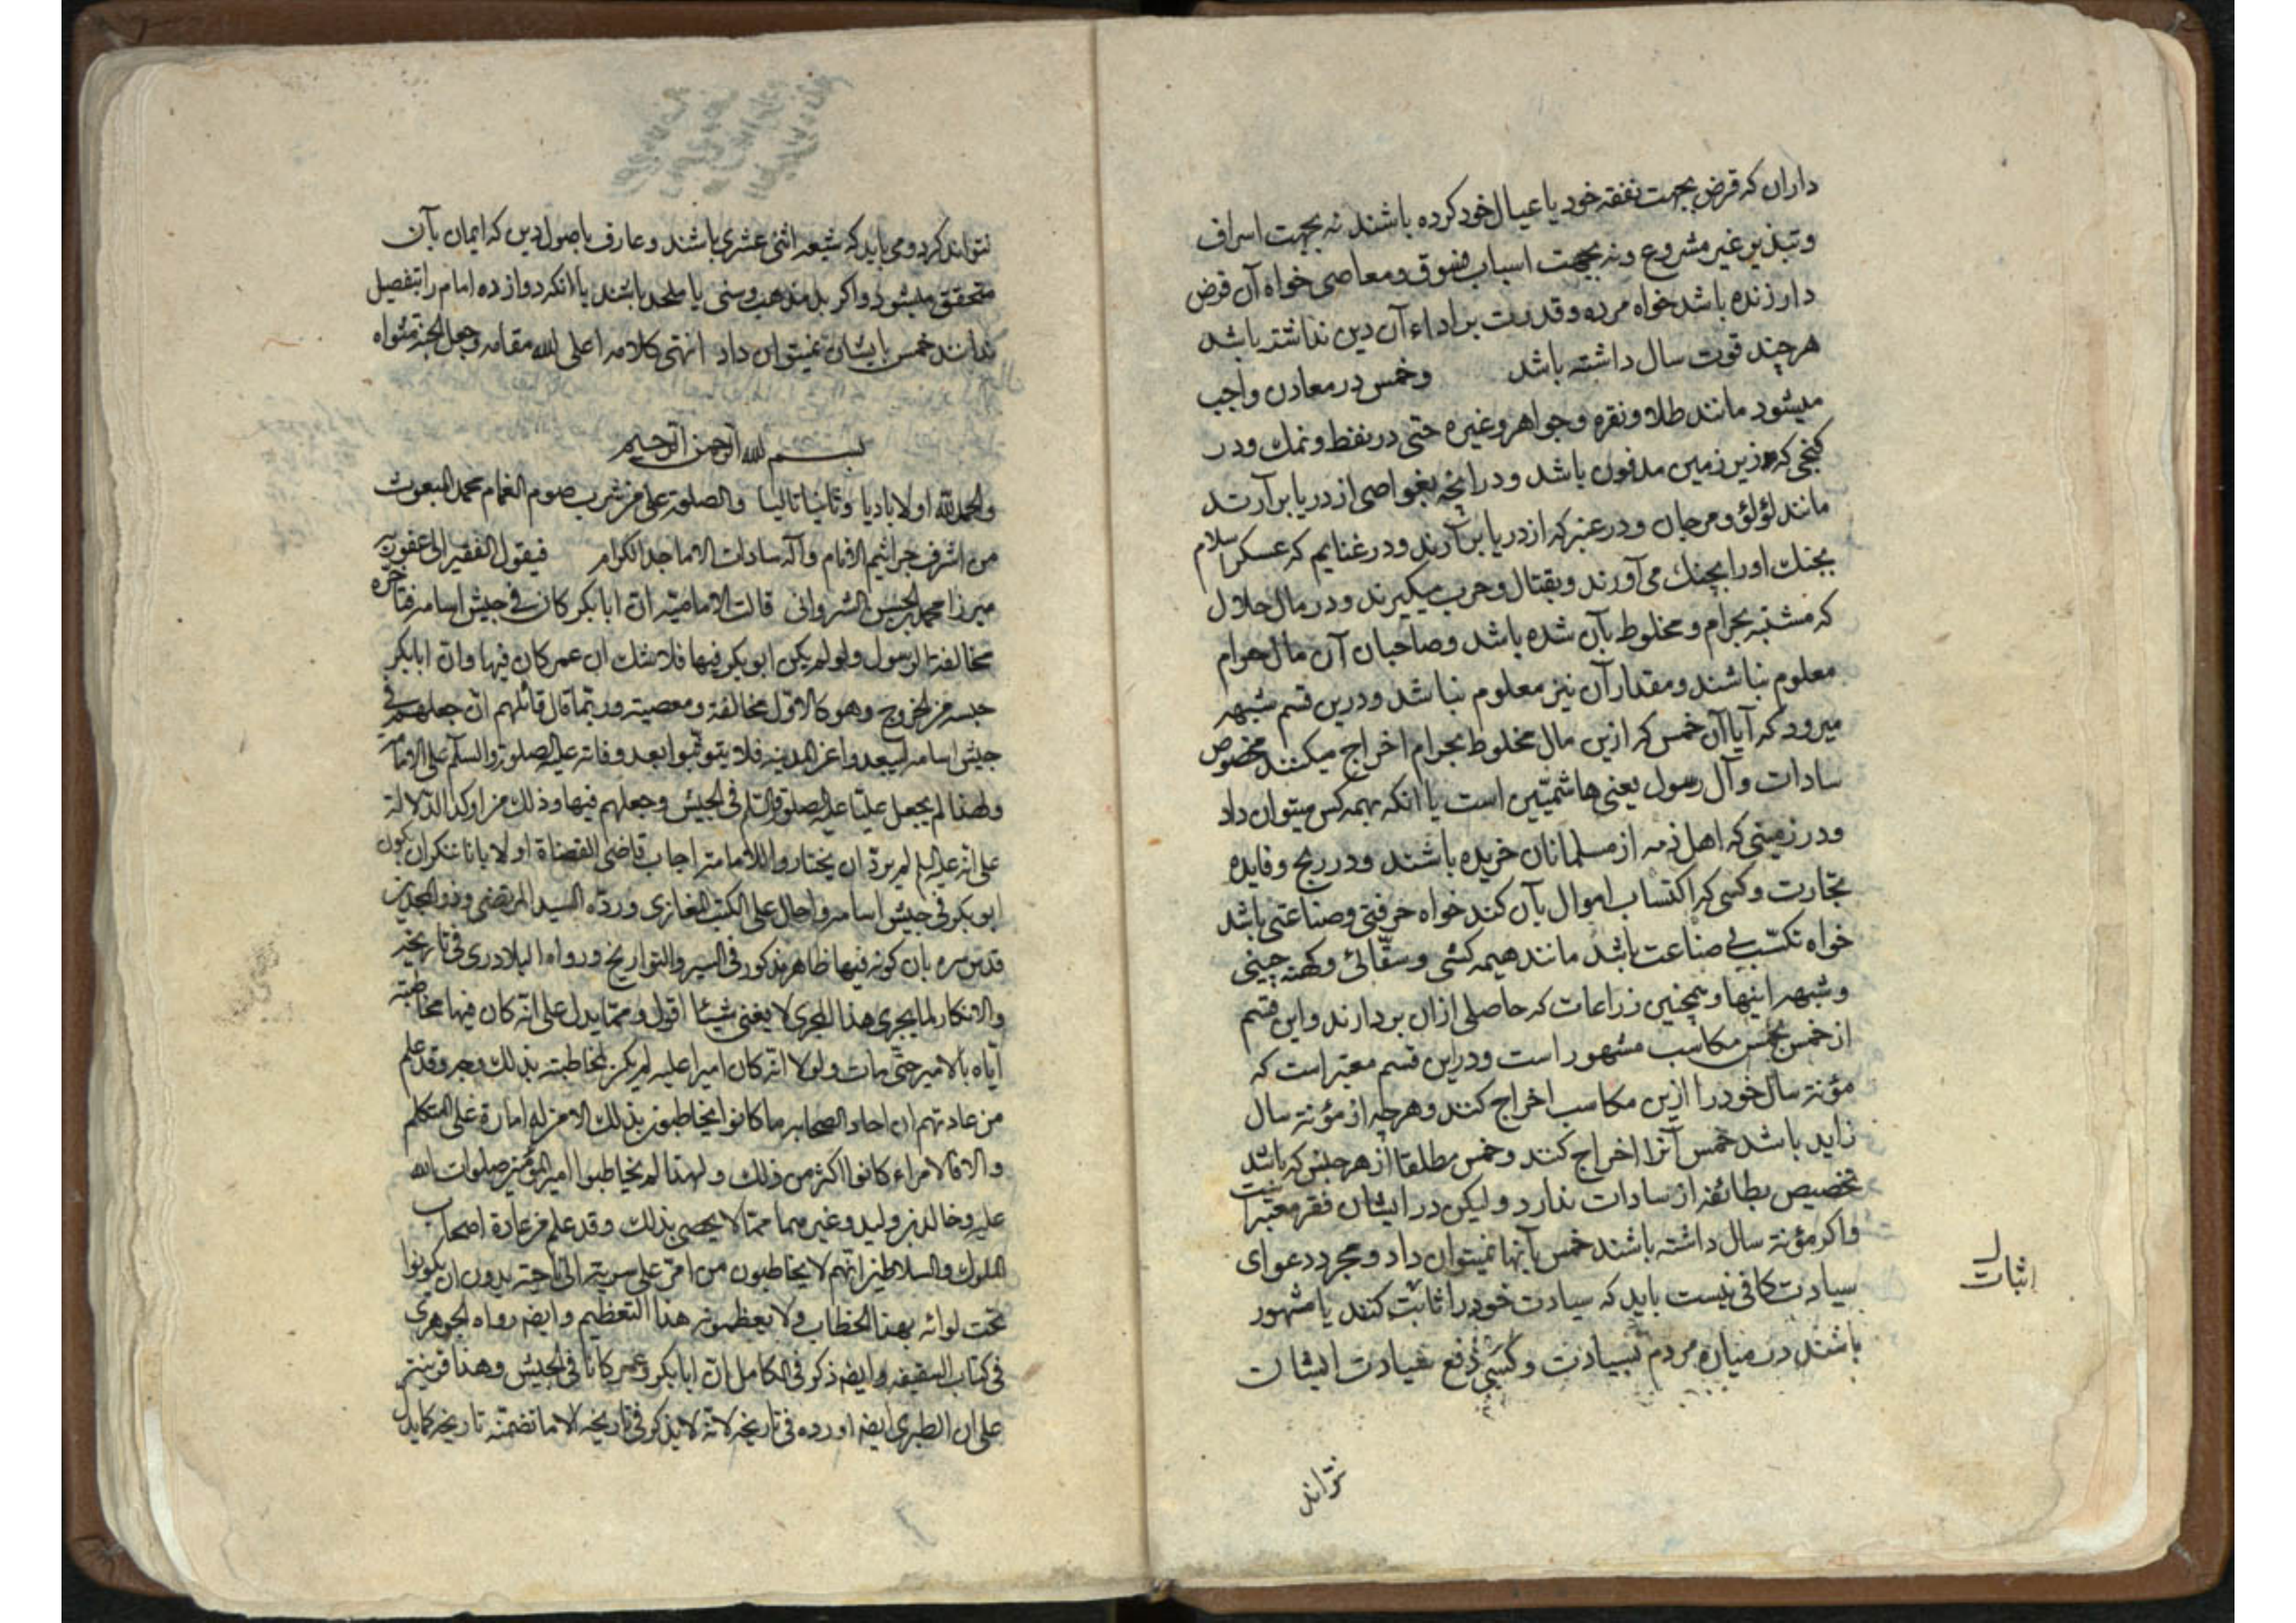 داران که قرض بجهت نفقه خود یا عیال خود کرده باشند نه بجهت اسراف
و تبذیر غیر مشروع و نه بجهت اسباب فسوق و معاصی خواه آن قرض
دار زنده باشد خواه مرده و قدرت بر اداء آن دین نداشته باشد
هر چند قوت سال داشته باشد و خمس در معادن واجب
میشود مانند طلا و نقره و جواهر و غیره حتی در نفط و نمک و در
کنجی که در زیر زمین مدفون باشد و در آنچه بغواصی از دریا برآرند
مانند لؤلؤ و مرجان و در عنبر که از دریا برآرند و در غنایم که عسکر اسلام
بجنک اورا بجنک می آورند و بقتال و حرب میکیرند و در مال حلال
که مشتبه بحرام و مخلوط بآن شده باشد و صاحبان آن مال حرام
معلوم نباشند و مقدار آن نیز معلوم نباشد و درین قسم شبهه
میرود که آیا آن خمس که ازین مال مخلوط بحرام اخراج میکنند مخصوص
سادات و آل رسول یعنی هاشمیین است یا آنکه بهمه کس میتوان داد
و در زمینی که اهل ذمه از مسلمانان خریده باشند و در ربح و فایده
تجارت و کسی که اکتساب اموال بآن کند خواه حرفتی و صناعتی باشد
خواه تکسب بی صناعت باشد مانند هیمه کشی و سقائی و کهنه چینی
و شبهه اینها و همچنین زراعات که حاصلی ازان بردارند و این قسم
از خمس بخمس مکاسب مشهور است و دراین قسم معتبر است که
مؤنة سال خود را ازین مکاسب اخراج کنند و هرچه از مؤنة سال
زاید باشد خمس آنرا اخراج کنند و خمس مطلقا از هر جنس که باشد
تخصیص بطائفه از سادات ندارد و لیکن در ایشان فقر معتبر است
و اکر مؤنة سال داشته باشند خمس بآنها نمیتوان داد و مجرد دعوای
سیادت کافی نیست باید که سیادت خود را ثابت کنند یا مشهور
باشند در میان مردم بسیادت و کسی دفع سیادت ایشان
اثبات
نتواند
نتواند کرد و می باید که شیعه اثنی عشری باشند و عارف باصول دین که ایمان بآن
متحقق میشود و اکر بد مذهب و سنی یا ملحد باشند یا آنکه دوازده امام را بتفصیل
ندانند خمس بایشان نمیتوان داد انتهی کلامه اعلی الله مقامه و جعل الجنة مثواه
بسم الله الرحمن الرحیم
والحمد لله اولا بادیا و ثانیا تالیا والصلوة علی من شرب صوم الغمام محمد المبعوث
من اشرف جراثیم الانام وآله سادات الاماجد الکرام فیقول الفقیر الی عفو ربه
میرزا محمد بن الحسن الشروانی قالت الامامیة ان ابابکر کان فی جیش اسامه فتأخره
مخالفة الرسول ولو لم یکن ابوبکر فیها فلا شک ان عمر کان فیها وان ابابکر
حبسه من الخروج وهو کالاول مخالفة ومعصیة وربما قال قائلهم ان جعلهم فی
جیش اسامه لیبعدوا عن المدینه فلا یتوثبوا بعد وفاته علیه الصلوة والسلم علی الامامة
ولهذا لم یجعل علیا علیه الصلوة والسلم فی الجیش وجعلهم فیها وذلک من اوکد الدلالة
علی انه علیه السلم لم یرد ان یختاروا للامامة اجاب قاضی القضاة اولا بانا ننکر ان یکون
ابوبکر فی جیش اسامه واحال علی الکتب المغازی ورده السید المرتضی وذو المجدین
قدس سره بان کونه فیها ظاهر مذکور فی السیر والتواریخ ورواه البلادری فی تاریخه
والانکار لما یجری هذا المجری لا یغنی شیئا اقول ومما یدل علی انه کان فیها مخاطبته
ایاه بالامیر حتی مات ولولا انه کان امیرا علیه لم یکن لمخاطبته بذلک وجه وقد علم
من عادتهم ان احاد الصحابه ما کانوا یخاطبون بذلک الا من له امارة علی المتکلم
والا فالامراء کانوا اکثر من ذلک ولهذا لم یخاطبوا امیر المؤمنین صلوات الله
علیه وخالد بن ولید وغیرهما مما لا یحصی بذلک وقد علم من عادة اصحاب
الملوک والسلاطین انهم لا یخاطبون من امّر علی سریة الی ناحیة بدون ان یکونوا
تحت لوائه بهذا الخطاب ولا یعظمونه هذا التعظیم وایضا رواه الجوهری
فی کتاب السقیفه وایضا ذکر فی الکامل ان ابابکر وعمر کانا فی الجیش وهذا قرینة
علی ان الطبری ایضا اورده فی تاریخه لانه لا یذکر فی تاریخه الا ما تضمنه تاریخه کما یدل